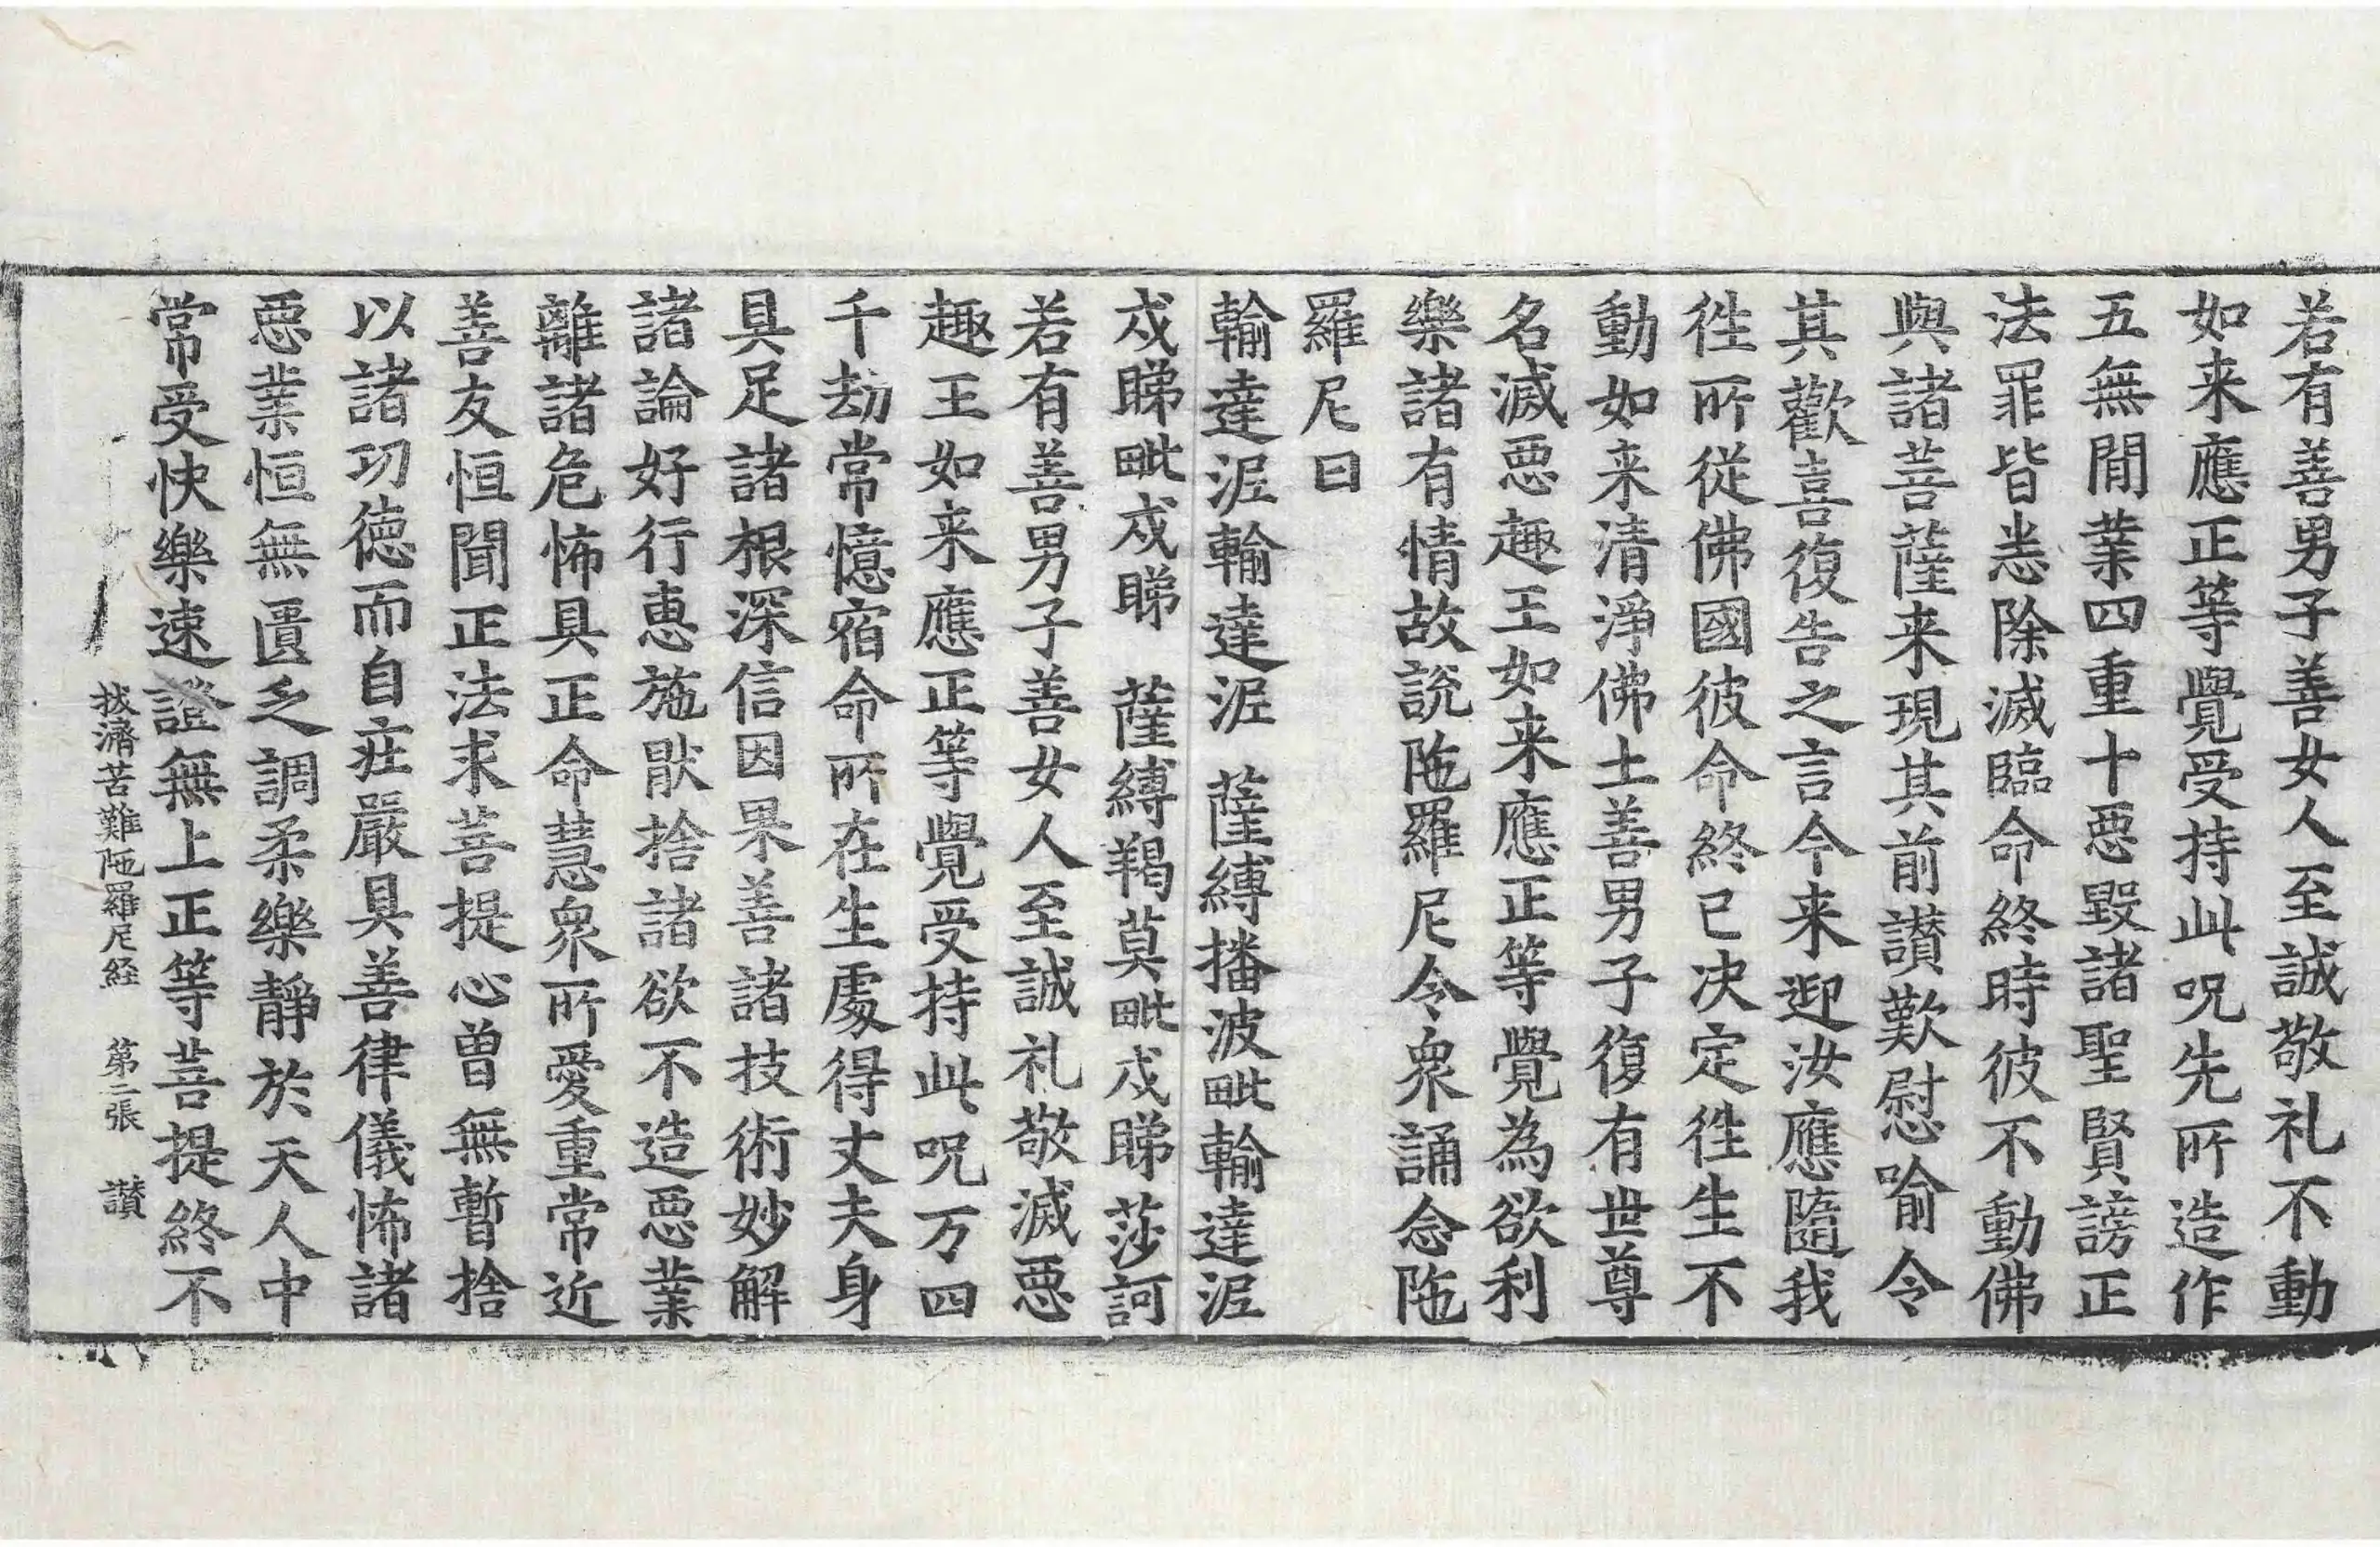 若有善男子善女人至誠敬礼不動
如来應正等覺受持此呪先所造作
五無閒業四重十惡毀諸聖賢謗正
法罪皆悉除滅臨命終時彼不動佛
與諸菩薩来現其前讃歎慰喻令
其歡喜復告之言今来迎汝應隨我
徃所從佛國彼命終已决定徃生不
動如来清淨佛土善男子復有世尊
名滅惡趣王如来應正等覺為欲利
樂諸有情故說陁羅尼令衆誦念陁
羅尼曰
輸達浘輸達浘　薩縛播波毗輸達浘
戍睇毗戍睇　薩縛羯莫毗戍睇莎訶
若有善男子善女人至誠礼敬滅惡
趣王如来應正等覺受持此呪万四
千劫常憶宿命所在生處得丈夫身
具足諸根深信因果善諸技術妙解
諸論好行惠施猒捨諸欲不造惡業
離諸危怖具正命慧衆所愛重常近
善友恒聞正法求菩提心曾無暫捨
以諸功德而自莊嚴具善律儀怖諸
惡業恒無匱乏調柔樂靜於天人中
常受快樂速證無上正等菩提終不
拔濟苦難陁羅尼経　第二張　讃